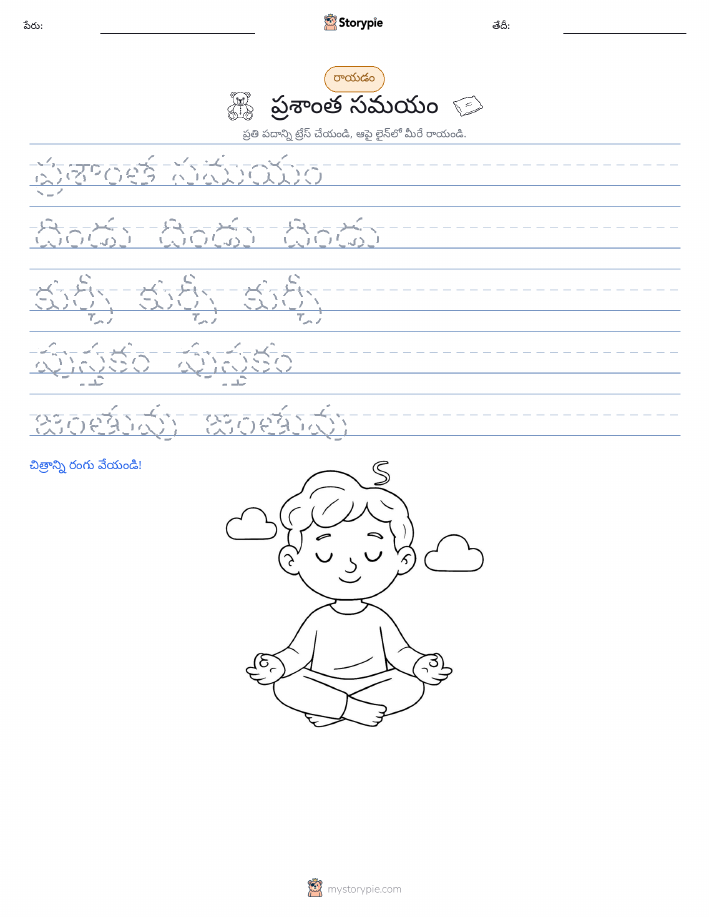 పేరు:
Storypie
తేదీ:
రాయడం
ప్రశాంత సమయం
ప్రతి పదాన్ని ట్రేస్ చేయండి, ఆపై లైన్‌లో మీరే రాయండి.
ప్రశాంత సమయం
దిండు దిండు దిండు
కుర్చీ కుర్చీ కుర్చీ
పుస్తకం పుస్తకం
జంతువు జంతువు
చిత్రాన్ని రంగు వేయండి!
mystorypie.com